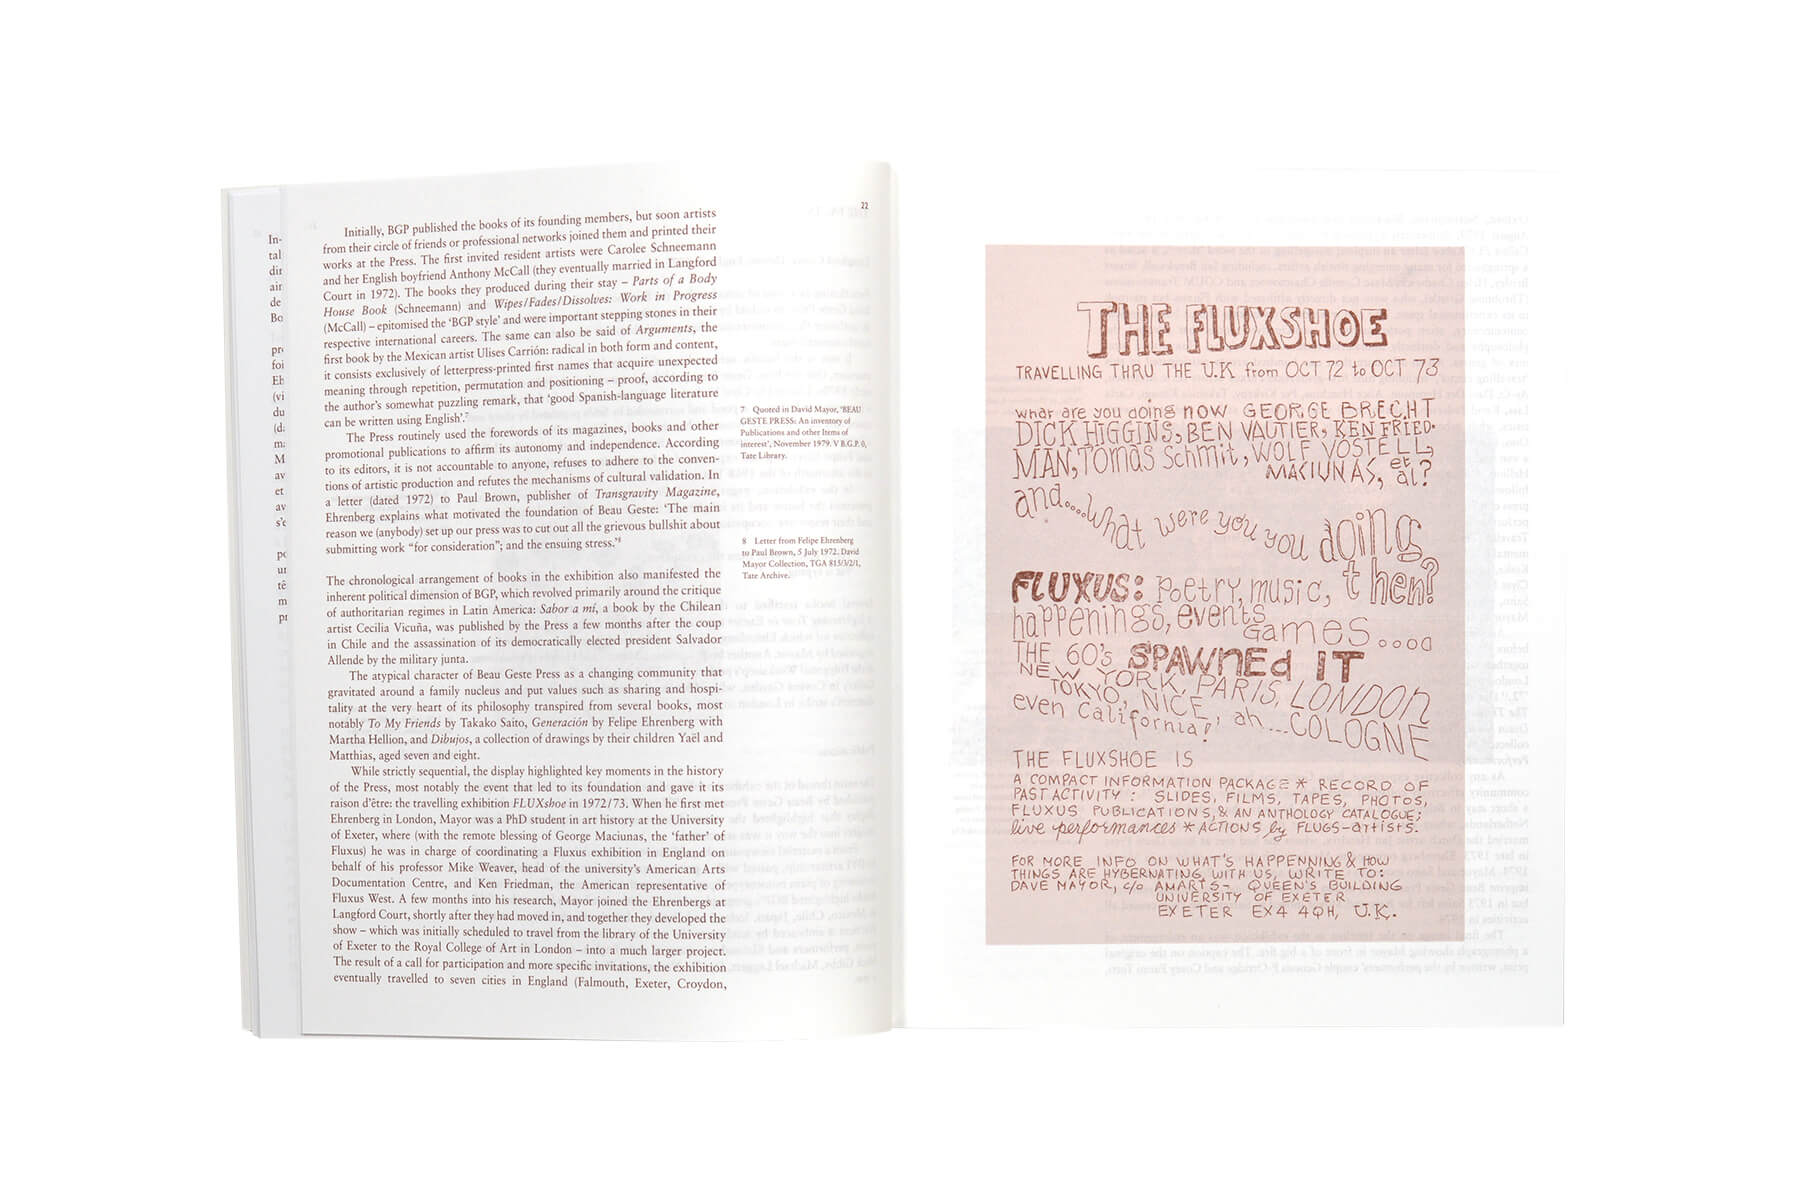 22
In-
tal
din
air
de
Bo
pr
foi
Eh
(vi
du
(da
ma
M
av
et
av
s'e
po
un
tê
m
pr
Initially, BGP published the books of its founding members, but soon artists
from their circle of friends or professional networks joined them and printed their
works at the Press. The first invited resident artists were Carolee Schneemann
and her English boyfriend Anthony McCall (they eventually married in Langford
Court in 1972). The books they produced during their stay – Parts of a Body
House Book (Schneemann) and Wipes/Fades/Dissolves: Work in Progress
(McCall) – epitomised the ‘BGP style’ and were important stepping stones in their
respective international careers. The same can also be said of Arguments, the
first book by the Mexican artist Ulises Carrión: radical in both form and content,
it consists exclusively of letterpress-printed first names that acquire unexpected
meaning through repetition, permutation and positioning – proof, according to
the author’s somewhat puzzling remark, that ‘good Spanish-language literature
can be written using English’.7
The Press routinely used the forewords of its magazines, books and other
promotional publications to affirm its autonomy and independence. According
to its editors, it is not accountable to anyone, refuses to adhere to the conven-
tions of artistic production and refutes the mechanisms of cultural validation. In
a letter (dated 1972) to Paul Brown, publisher of Transgravity Magazine,
Ehrenberg explains what motivated the foundation of Beau Geste: ‘The main
reason we (anybody) set up our press was to cut out all the grievous bullshit about
submitting work “for consideration”; and the ensuing stress.’8
The chronological arrangement of books in the exhibition also manifested the
inherent political dimension of BGP, which revolved primarily around the critique
of authoritarian regimes in Latin America: Sabor a mí, a book by the Chilean
artist Cecilia Vicuña, was published by the Press a few months after the coup
in Chile and the assassination of its democratically elected president Salvador
Allende by the military junta.
The atypical character of Beau Geste Press as a changing community that
gravitated around a family nucleus and put values such as sharing and hospi-
tality at the very heart of its philosophy transpired from several books, most
notably To My Friends by Takako Saito, Generación by Felipe Ehrenberg with
Martha Hellion, and Dibujos, a collection of drawings by their children Yaël and
Matthias, aged seven and eight.
While strictly sequential, the display highlighted key moments in the history
of the Press, most notably the event that led to its foundation and gave it its
raison d’être: the travelling exhibition FLUXshoe in 1972/73. When he first met
Ehrenberg in London, Mayor was a PhD student in art history at the University
of Exeter, where (with the remote blessing of George Maciunas, the ‘father’ of
Fluxus) he was in charge of coordinating a Fluxus exhibition in England on
behalf of his professor Mike Weaver, head of the university’s American Arts
Documentation Centre, and Ken Friedman, the American representative of
Fluxus West. A few months into his research, Mayor joined the Ehrenbergs at
Langford Court, shortly after they had moved in, and together they developed the
show – which was initially scheduled to travel from the library of the University
of Exeter to the Royal College of Art in London – into a much larger project.
The result of a call for participation and more specific invitations, the exhibition
eventually travelled to seven cities in England (Falmouth, Exeter, Croydon,
7 Quoted in David Mayor, ‘BEAU
GESTE PRESS: An inventory of
Publications and other Items of
interest’, November 1979. V B.G.P. 0,
Tate Library.
8 Letter from Felipe Ehrenberg
to Paul Brown, 5 July 1972. David
Mayor Collection, TGA 815/3/2/1,
Tate Archive.
THE FLUXSHOE
TRAVELLING THRU THE U.K from OCT 72 to OCT 73
what are you doing now GEORGE BRECHT
DICK HIGGINS, BEN VAUTIER, KEN FRIED-
MAN, Tomas Schmit, WOLF VOSTELL,
MACIUNAS, et al?
and....what were you you doing
then?
FLUXUS: Poetry, music,
happenings, events
games....
THE 60's SPAWNEd IT
NEW YORK, PARIS, LONDON
TOKYO, NICE,
even California!, ah...COLOGNE
THE FLUXSHOE IS
A COMPACT INFORMATION PACKAGE * RECORD OF
PAST ACTIVITY : SLIDES, FILMS, TAPES, PHOTOS,
FLUXUS PUBLICATIONS, & AN ANTHOLOGY CATALOGUE;
live performances * ACTIONS by FLUGS-artists.
FOR MORE INFO ON WHAT'S HAPPENNING & HOW
THINGS ARE HYBERNATING WITH US, WRITE TO:
DAVE MAYOR, c/o AMARTS– QUEEN'S BUILDING
UNIVERSITY OF EXETER
EXETER EX4 4QH, U.K.